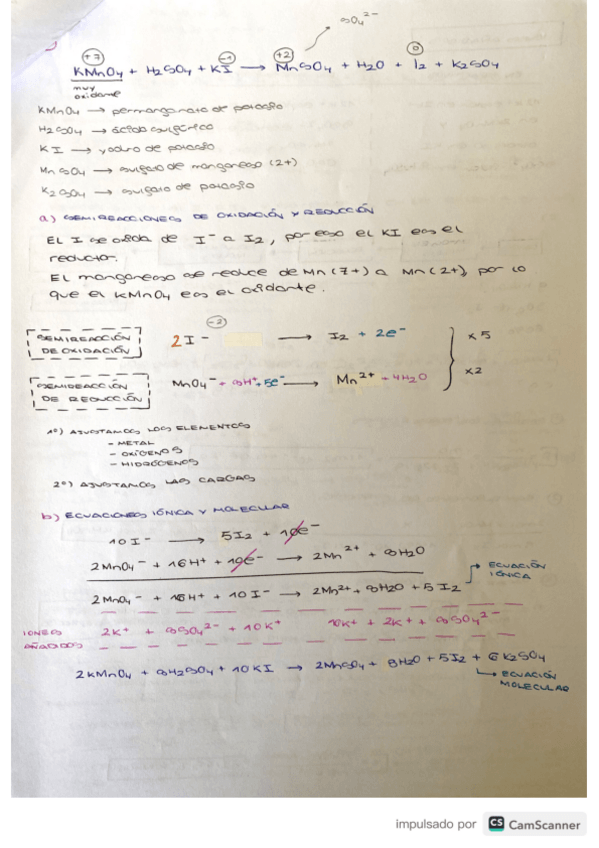 SO₄²⁻
+7 -1 +2 0
KMnO₄ + H₂SO₄ + KI → MnSO₄ + H₂O + I₂ + K₂SO₄
muy
oxidante
KMnO₄ → permanganato de potasio
H₂SO₄ → ácido sulfúrico
KI → yoduro de potasio
MnSO₄ → sulfato de manganeso (2+)
K₂SO₄ → sulfato de potasio
a) SEMIREACCIONES DE OXIDACIÓN Y REDUCCIÓN
EL I se oxida de I⁻ a I₂, por eso el KI es el
reductor.
EL manganeso se reduce de Mn(7+) a Mn(2+) por lo
que el KMnO₄ es el oxidante.
-2
SEMIREACCIÓN
DE OXIDACIÓN
2I⁻ → I₂ + 2e⁻ x5
SEMIREACCIÓN
DE REDUCCIÓN
MnO₄⁻ + 8H⁺ + 5e⁻ → Mn²⁺ + 4H₂O x2
1º) AJUSTAMOS LOS ELEMENTOS
- METAL
- OXÍGENOS
- HIDRÓGENOS
2º) AJUSTAMOS LAS CARGAS
b) ECUACIONES IÓNICA Y MOLECULAR
10I⁻ → 5I₂ + 10e⁻
2MnO₄⁻ + 16H⁺ + 10e⁻ → 2Mn²⁺ + 8H₂O
2MnO₄⁻ + 16H + 10I⁻ → 2Mn²⁺ + 8H₂O + 5I₂
ECUACIÓN
IÓNICA
IONES
AÑADIDOS
2K⁺ + 8SO₄²⁻ + 10K⁺ 10K⁺ + 2K⁺ + 8SO₄²⁻
2KMnO₄ + 8H₂SO₄ + 10KI → 2MnSO₄ + 8H₂O + 5I₂ + 6K₂SO₄
ECUACIÓN
MOLECULAR
impulsado por CS CamScanner